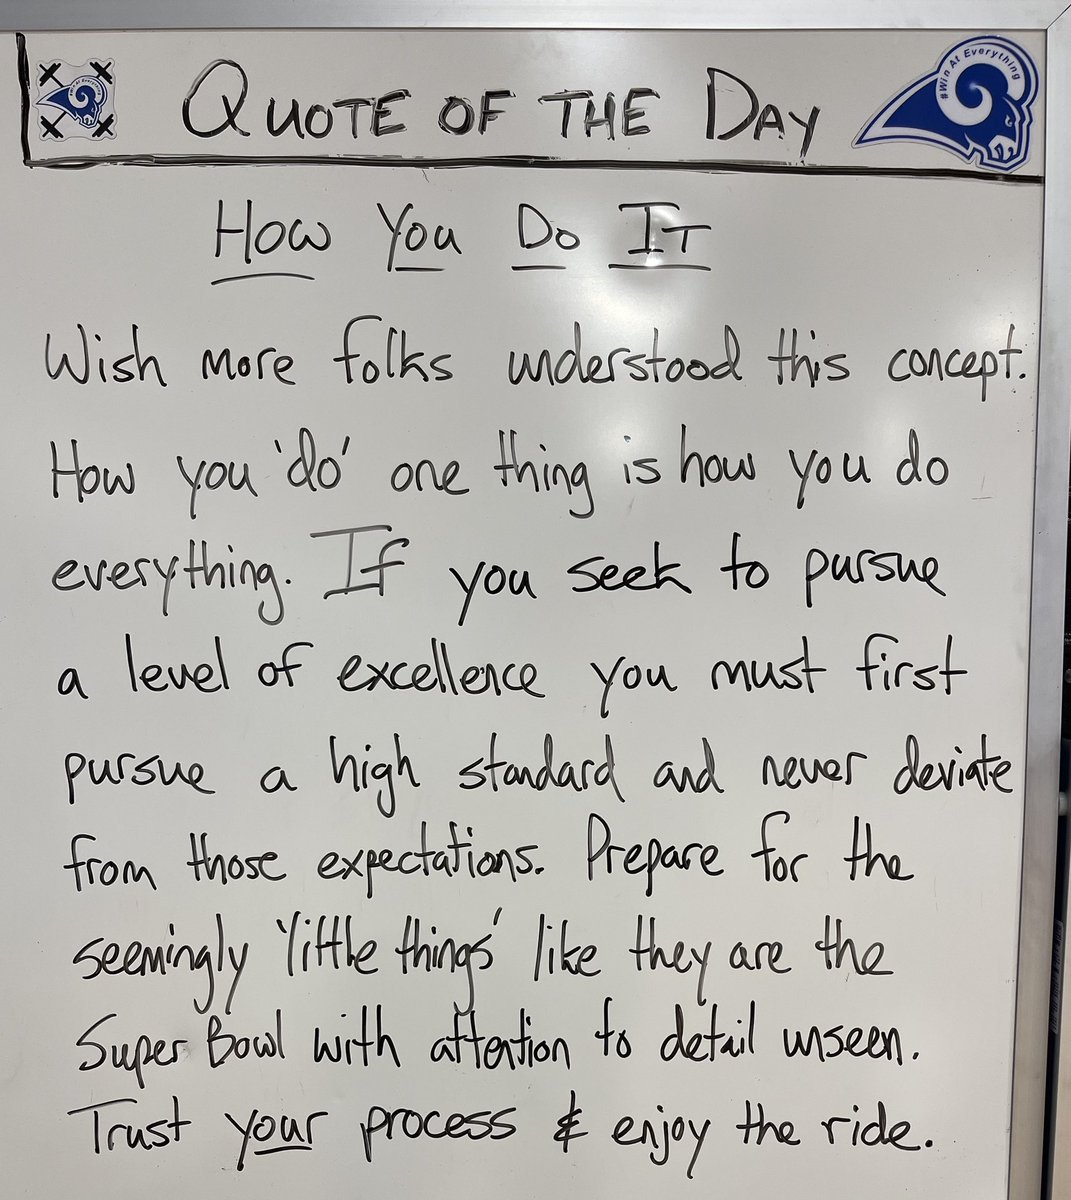 #Win At Everything
QUOTE OF THE DAY
#Win At Everything
How You Do It
Wish more folks understood this concept.
How you 'do' one thing is how you do
everything. If you seek to pursue
a level of excellence you must first
pursue a high standard and never deviate
from those expectations. Prepare for the
seemingly 'little things' like they are the
Super Bowl with attention to detail unseen.
Trust your process & enjoy the ride.